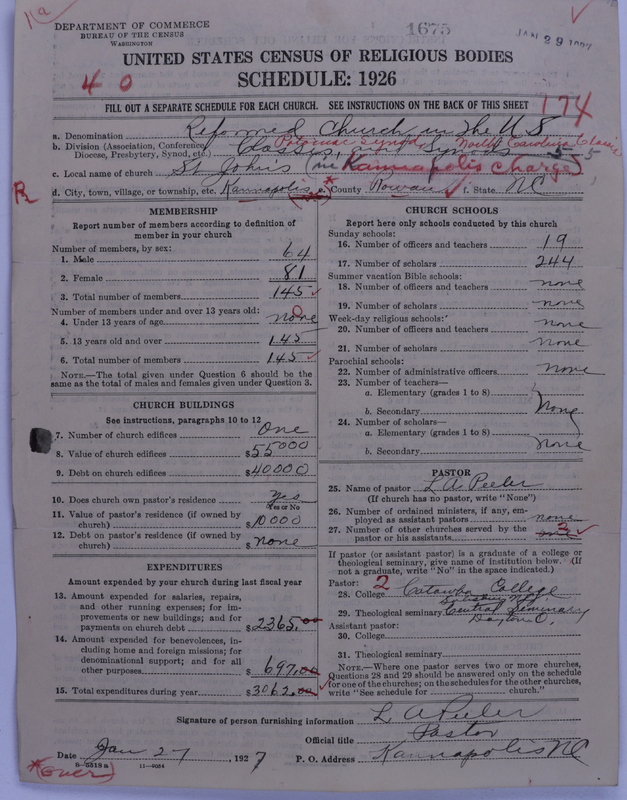 1a
DEPARTMENT OF COMMERCE
BUREAU OF THE CENSUS
WASHINGTON
1675
JAN 29 1927
UNITED STATES CENSUS OF RELIGIOUS BODIES
SCHEDULE: 1926
4 0
FILL OUT A SEPARATE SCHEDULE FOR EACH CHURCH. SEE INSTRUCTIONS ON THE BACK OF THIS SHEET
174
a. Denomination Reformed Church in the U S
Potomac Synod, North Carolina Classis
b. Division (Association, Conference, Diocese, Presbytery, Synod, etc.) Classis, and Synods
c. Local name of church St John's (in Kannapolis Charge)
d. City, town, village, or township, etc. Kannapolis e. County Rowan f. State NC
MEMBERSHIP
Report number of members according to definition of
member in your church
Number of members, by sex:
1. Male 64
2. Female 81
3. Total number of members 145
Number of members under and over 13 years old:
4. Under 13 years of age none 0
5. 13 years old and over 145
6. Total number of members 145
NOTE.—The total given under Question 6 should be the
same as the total of males and females given under Question 3.
CHURCH BUILDINGS
See instructions, paragraphs 10 to 12
7. Number of church edifices One
8. Value of church edifices $ 55000
9. Debt on church edifices $ 40000
10. Does church own pastor's residence yes
Yes or No
11. Value of pastor's residence (if owned by
church) $ 10000
12. Debt on pastor's residence (if owned by
church) $ none
EXPENDITURES
Amount expended by your church during last fiscal year
13. Amount expended for salaries, repairs,
and other running expenses; for im-
provements or new buildings; and for
payments on church debt $ 2365.00
14. Amount expended for benevolences, in-
cluding home and foreign missions; for
denominational support; and for all
other purposes $ 697.00
15. Total expenditures during year $ 3062.00
CHURCH SCHOOLS
Report here only schools conducted by this church
Sunday schools:
16. Number of officers and teachers 19
17. Number of scholars 244
Summer vacation Bible schools:
18. Number of officers and teachers none
19. Number of scholars none
Week-day religious schools:
20. Number of officers and teachers none
21. Number of scholars none
Parochial schools:
22. Number of administrative officers none
23. Number of teachers—
a. Elementary (grades 1 to 8)
b. Secondary None
24. Number of scholars—
a. Elementary (grades 1 to 8)
b. Secondary none
PASTOR
25. Name of pastor L A Peeler
(If church has no pastor, write "None")
26. Number of ordained ministers, if any, em-
ployed as assistant pastors none
27. Number of other churches served by the
pastor or his assistants one 3
If pastor (or assistant pastor) is a graduate of a college or
theological seminary, give name of institution below. (If
not a graduate, write "No" in the space indicated.)
Pastor: 2
28. College Catawba College
Salisbury NC
29. Theological seminary Central Seminary
Dayton O.
Assistant pastor:
30. College
31. Theological seminary
NOTE.—Where one pastor serves two or more churches,
Questions 28 and 29 should be answered only on the schedule
for one of the churches; on the schedules for the other churches,
write "See schedule for church."
Signature of person furnishing information L A Peeler
Official title Pastor
Date Jan 27, 1927 P. O. Address Kannapolis NC
8-5518a 11-9054
*(over)